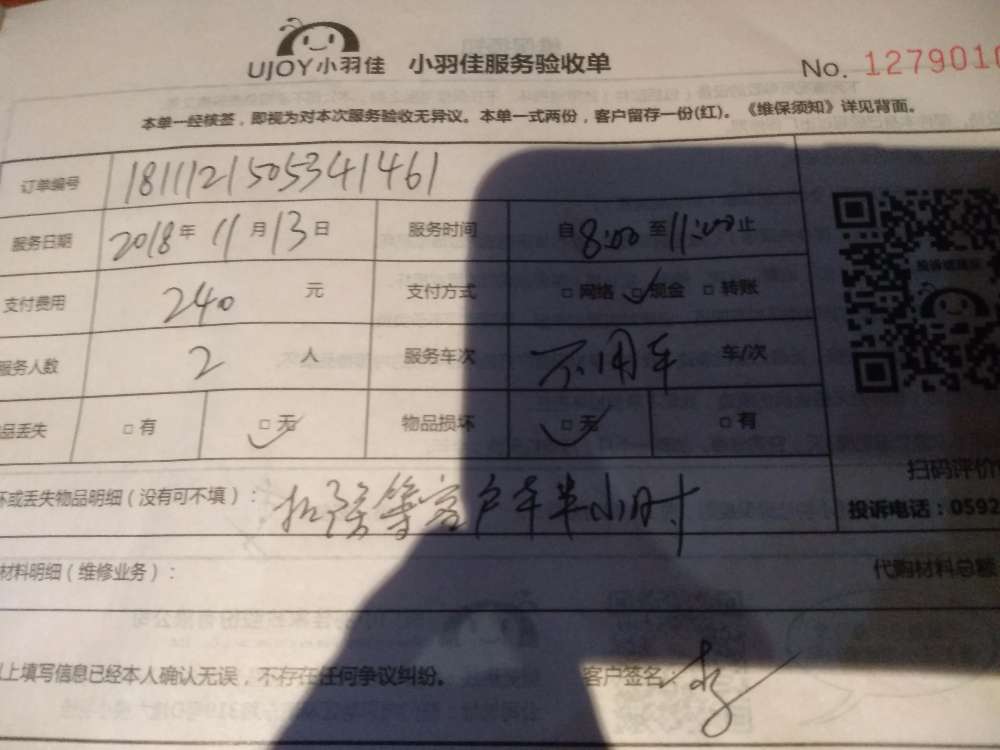 UJOY小羽佳 小羽佳服务验收单 No. 1279010
本单一经核签，即视为对本次服务验收无异议。本单一式两份，客户留存一份(红)。《维保须知》详见背面。
订单编号 1811121505341461
服务日期 2018年 11月13日 服务时间 自8:00至11:00止
支付费用 240 元 支付方式 □网络 □现金 □转账
服务人数 2 人 服务车次 不用车 车/次
品丢失 □有 □无 物品损坏 □无 □有
投诉或建议
扫码评价
坏或丢失物品明细（没有可不填）： 扣除等客户车半小时
投诉电话：0592
材料明细（维修业务）： 代购材料总额
以上填写信息已经本人确认无误，不存在任何争议纠纷。 客户签名：